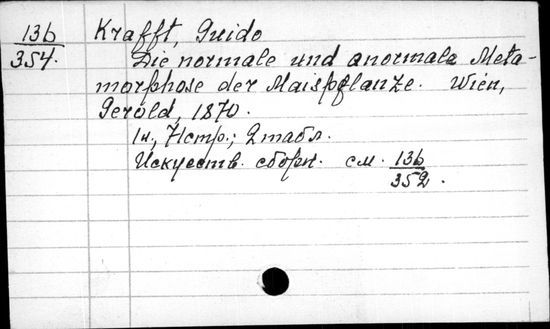 136
354.
Krafft, Guido
Die normale und anormale Meta-
morphose der Maispflanze. Wien,
Gerold, 1870.
1н., 71стр.; 2 табл.
Искусств. сборн. см. 136
352.